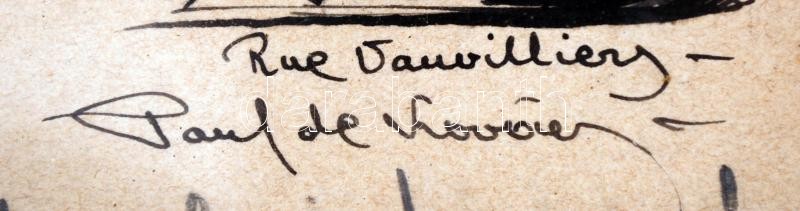 Rue Vauvilliers –
Paul de
darabanth